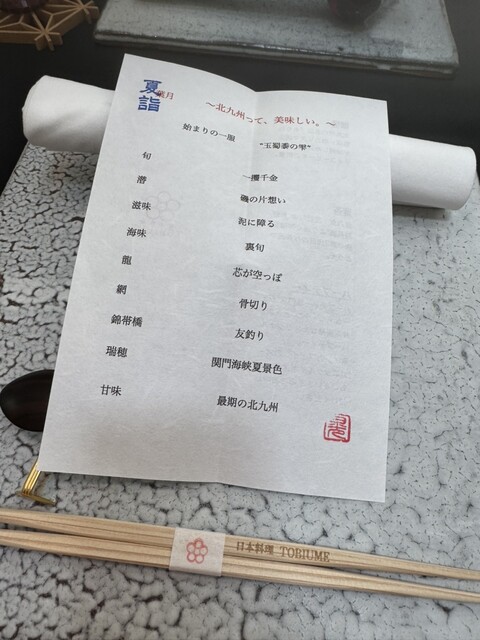 夏詣 葉月
～北九州って、美味しい。～
始まりの一服 "玉蜀黍の雫"
旬 一攫千金
潜 磯の片想い
滋味 泥に障る
海味 裏旬
龍 芯が空っぽ
網 骨切り
錦帯橋 友釣り
瑞穂 関門海峡夏景色
甘味 最期の北九州
日本料理 TORIUME